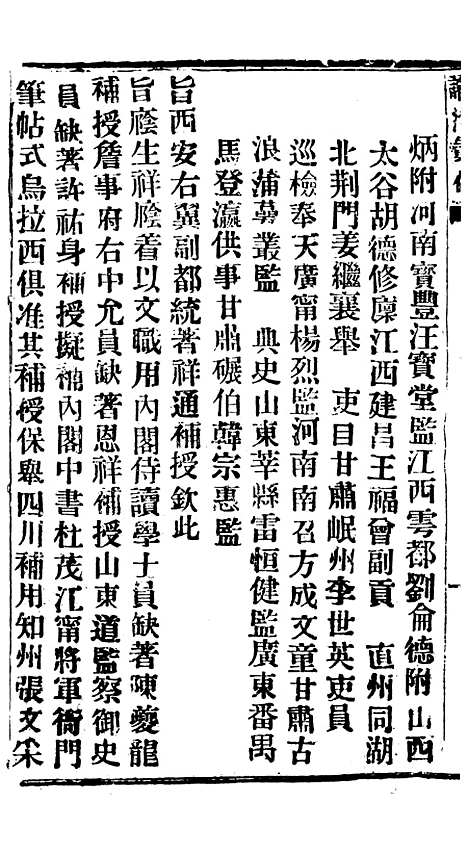 炳附河南寶豐汪寶堂監江西雩都劉侖德附山西
太谷胡德修廩江西建昌王福曾副貢　直州同湖
北荆門姜繼襄舉　吏目甘肅岷州李世英吏員
巡檢奉天廣甯楊烈監河南南召方成文童甘肅古
浪蒲蓁叢監　典史山東莘縣雷恒健監廣東番禺
馬登瀛供事甘肅碾伯韓宗惠監
旨西安右翼副都統著祥通補授欽此
旨廕生祥廕着以文職用內閣侍讀學士員缺著陳夔龍
補授詹事府右中允員缺著恩祥補授山東道監察御史
員缺著許祐身補授擬補內閣中書杜茂江甯將軍衙門
筆帖式烏拉西俱准其補授保舉四川補用知州張文采